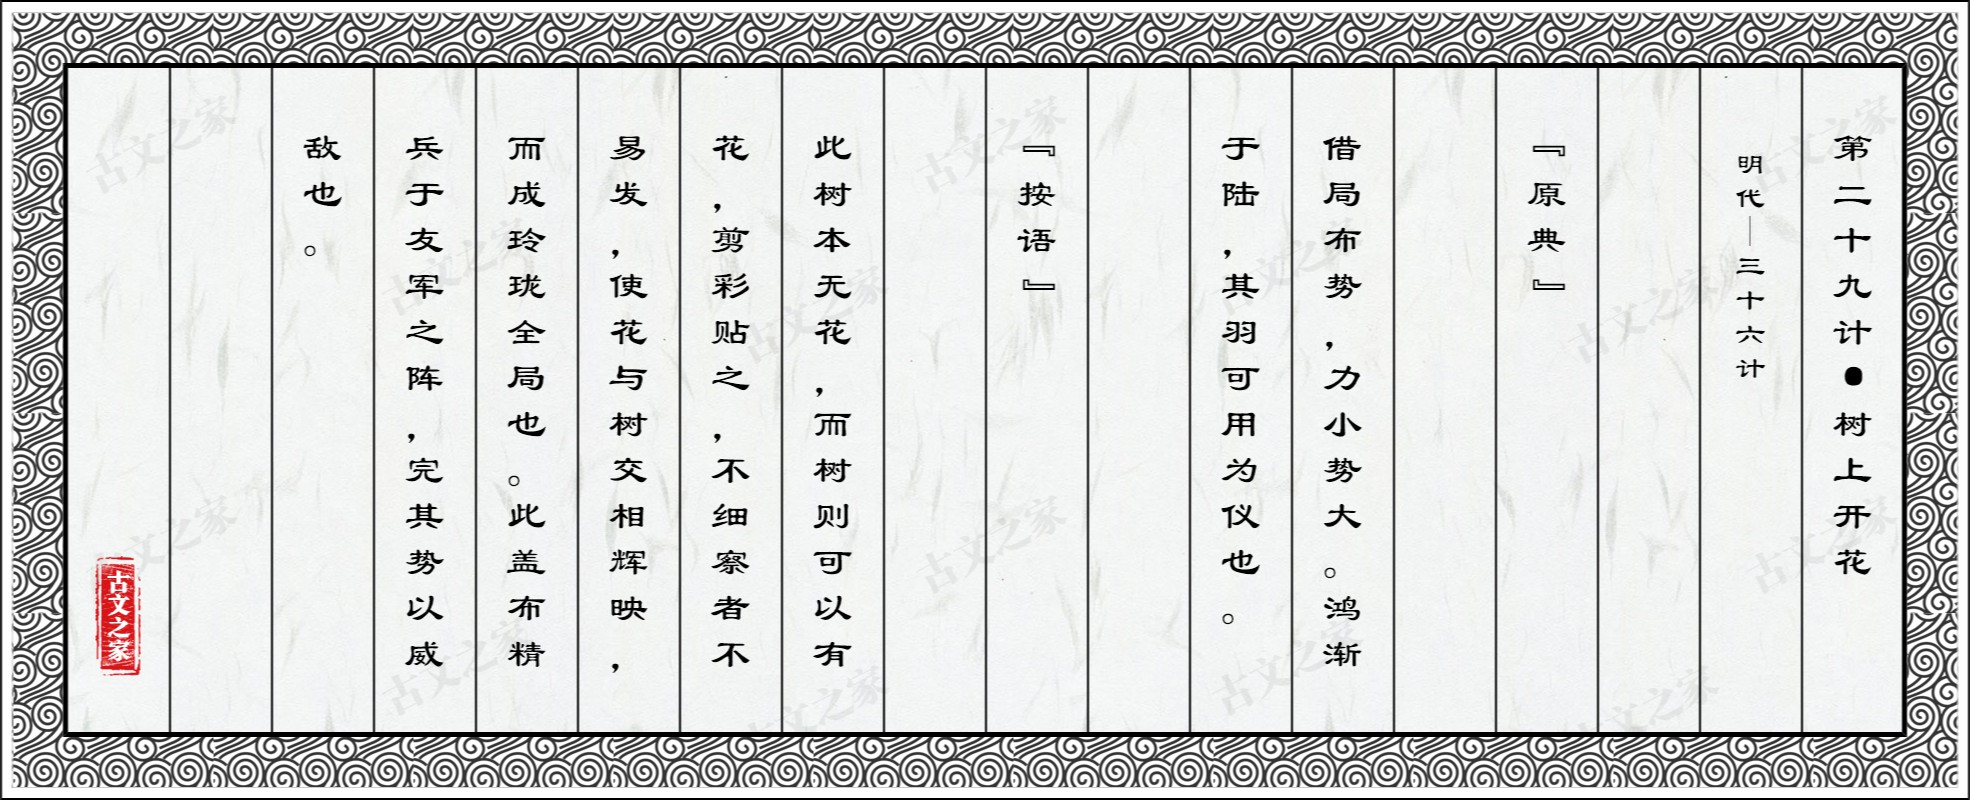 第二十九计●树上开花
明代—三十六计
『原典』
借局布势，力小势大。鸿渐
于陆，其羽可用为仪也。
『按语』
此树本无花，而树则可以有
花，剪彩贴之，不细察者不
易发，使花与树交相辉映，
而成玲珑全局也。此盖布精
兵于友军之阵，完其势以威
敌也。
古文之家